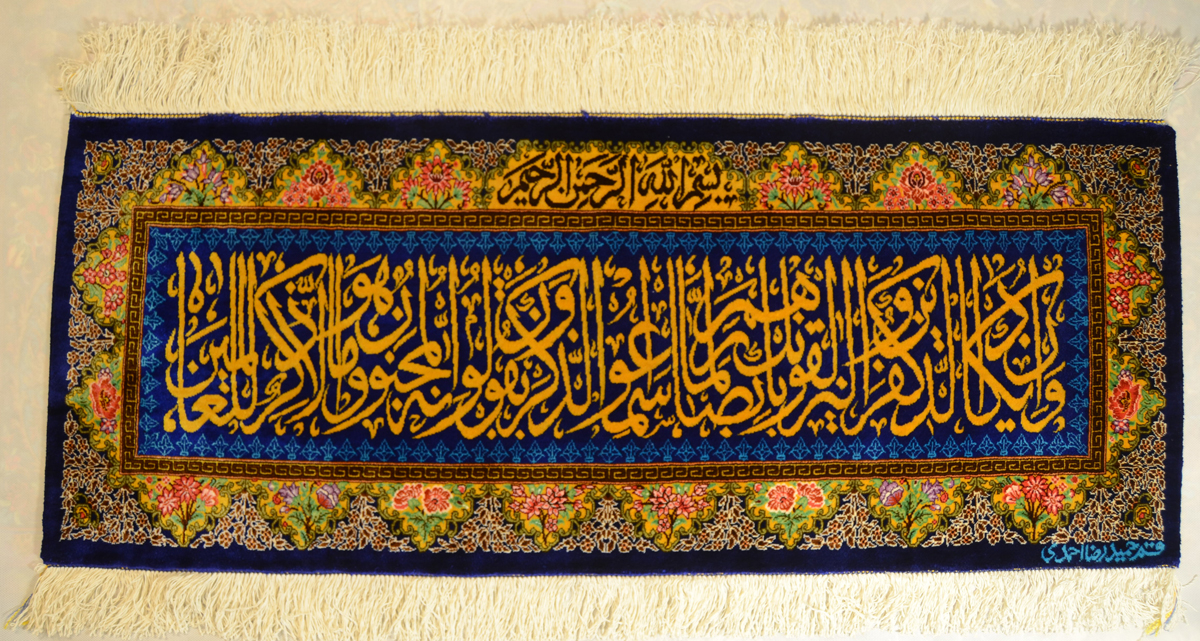 بسم الله الرحمن الرحیم
وان یکاد الذین کفروا لیزلقونک بابصارهم لما سمعوا الذکر ویقولون انه لمجنون وما هو الا ذکر للعالمین
قم حمیدرضا احمدی